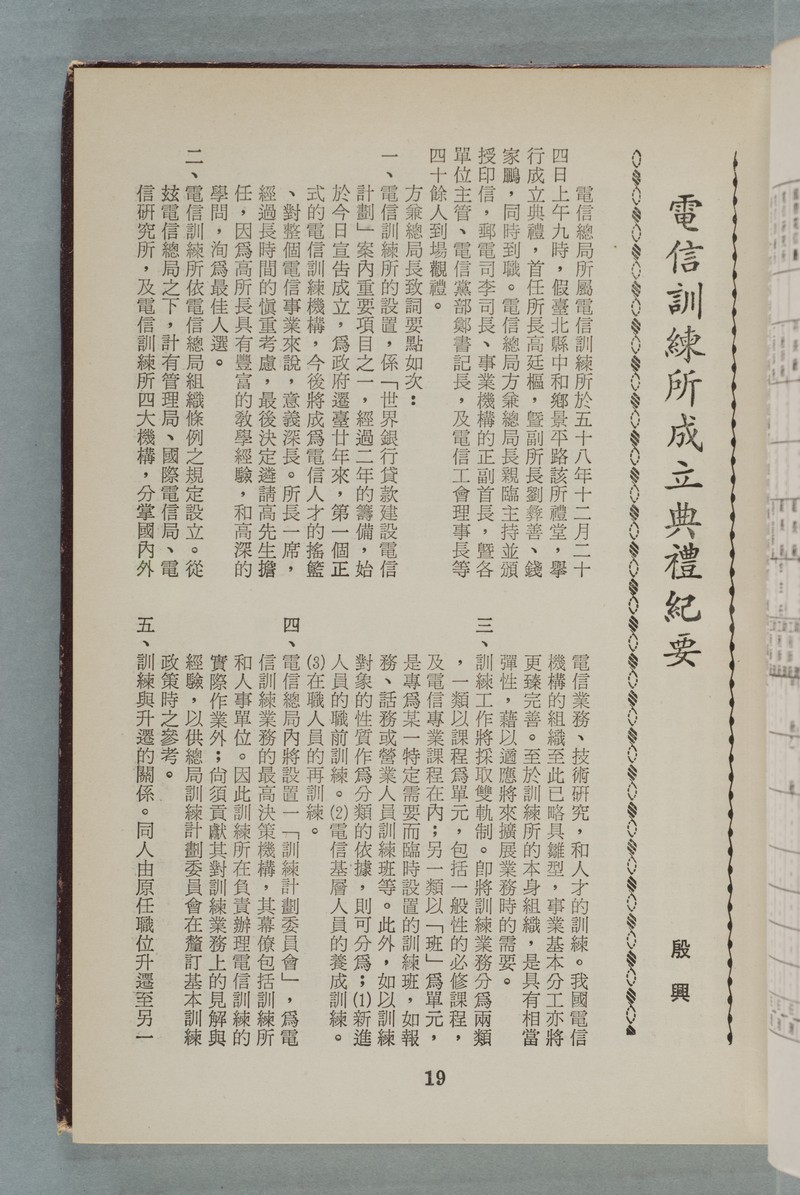 電信訓練所成立典禮紀要
殷興
電信總局所屬電信訓練所於五十八年十二月二十
四日上午九時，假臺北縣中和鄉景平路該所禮堂，舉
行成立典禮，首任所長高廷樞，暨副所長劉彝善、錢
家鵬，同時到職。電信總局方兼總局長親臨主持並頒
授印信，郵電司李司長、事業機構的正副首長，暨各
單位主管、電信黨部鄭書記長，及電信工會理事長等
四十餘人到場觀禮。
方兼總局長致詞要點如次：
一、電信訓練所的設置，係「世界銀行貸款建設電信
計劃」案內重要項目之一，經過二年的籌備，始
於今日宣告成立，爲政府遷臺廿年來，第一個正
式的電信訓練機構，今後將成爲電信人才的搖籃
、對整個電信事業來說，意義深長。所長一席，
經過長時間的愼重考慮，最後決定遴請高先生擔
任，因爲高所長具有豐富的教學經驗，和高深的
學問，洵爲最佳人選。
二、電信訓練所依電信總局組織條例之規定設立。從
玆電信總局之下，計有管理局、國際電信局、電
信研究所，及電信訓練所四大機構，分掌國內外
電信業務、技術研究，和人才的訓練。我國電信
機構的組織至此已略具雛型，事業基本分工亦將
更臻完善。至於訓練所的本身組織，是具有相當
彈性，藉以適應將來擴展業務時的需要。
三、訓練工作將採取雙軌制。卽將訓練業務分爲兩類
，一類以課程爲單元，包括一般性的必修課程，
及電信專業課程在內；另一類以「班」爲單元，
是專爲某一特定需要而臨時設置的訓練班，如報
務、話務或營業人員訓練班等。此外，如以訓練
對象的性質作爲分類的依據，則可分爲；⑴新進
人員的職前訓練。⑵電信基層人員的養成訓練。
⑶在職人員的再訓練。
四、電信總局內將設置一「訓練計劃委員會」，爲電
信訓練業務的最高決策機構，其幕僚包括訓練所
和人事單位。因此訓練所在負責辦理電信訓練的
實際作業外；尙須貢獻其對訓練業務上的見解與
經驗，以供總局訓練計劃委員會在釐訂基本訓練
政策時之參考。
五、訓練與升遷的關係。同人由原任職位升遷至另一
19